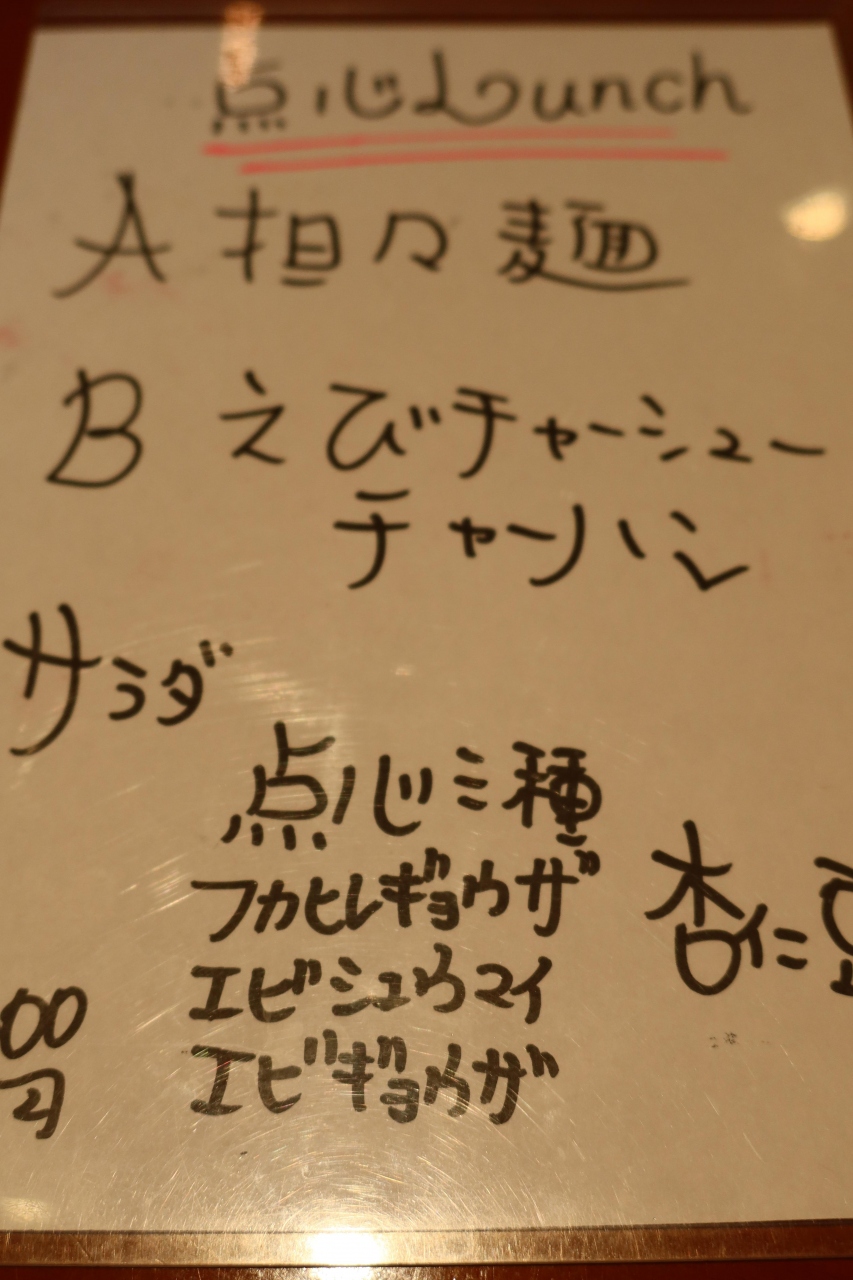 点心Lunch
A 担々麺
B えびチャーシュー
チャーハン
サラダ
点心三種
フカヒレギョウザ
エビシュウマイ
エビギョウザ
杏仁豆
00
円